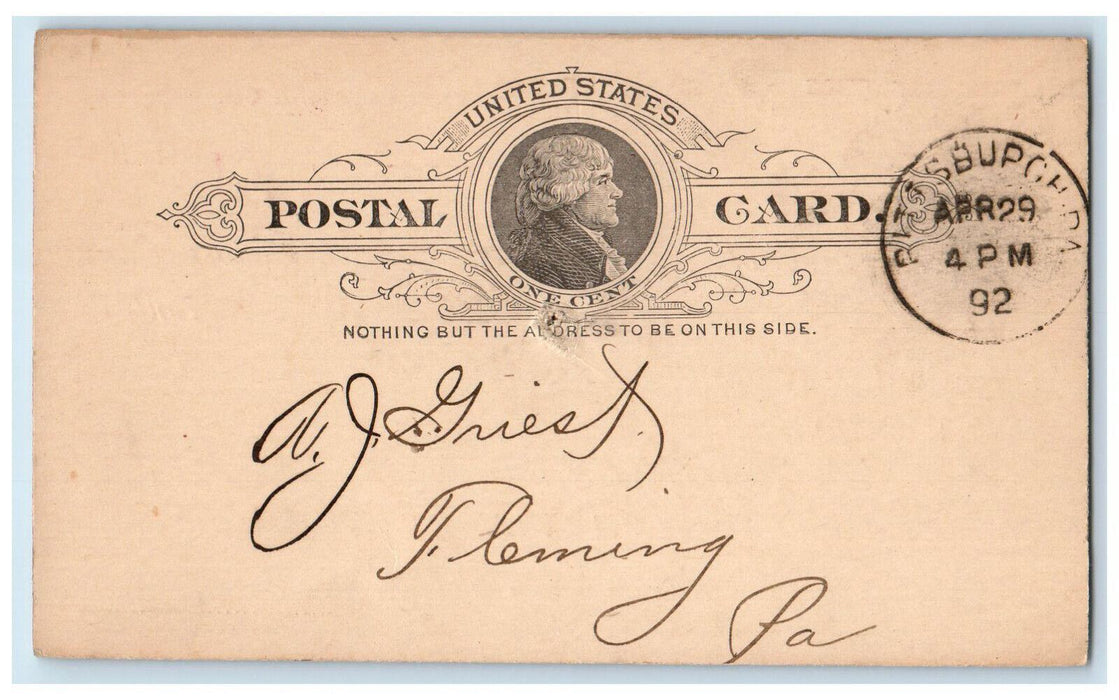 UNITED STATES
POSTAL CARD.
ONE CENT
NOTHING BUT THE ADDRESS TO BE ON THIS SIDE.
PITTSBURGH, PA
APR 29
4 PM
92
A. J. Griest.
Fleming
Pa